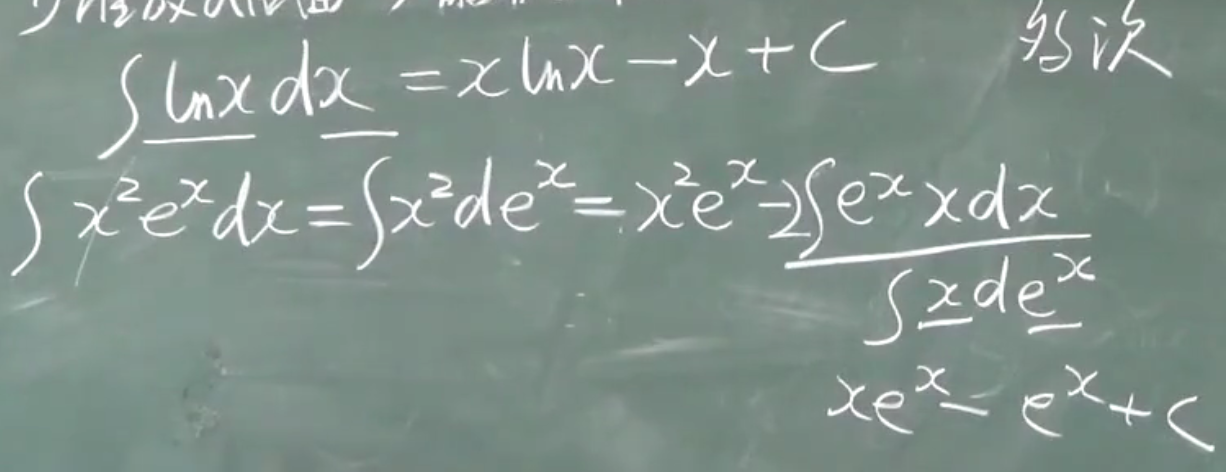 ∫ lnx dx = x lnx - x + C 多次
∫ x²eˣdx = ∫x²deˣ = x²eˣ - 2∫eˣxdx
∫xdeˣ
xeˣ - eˣ + C